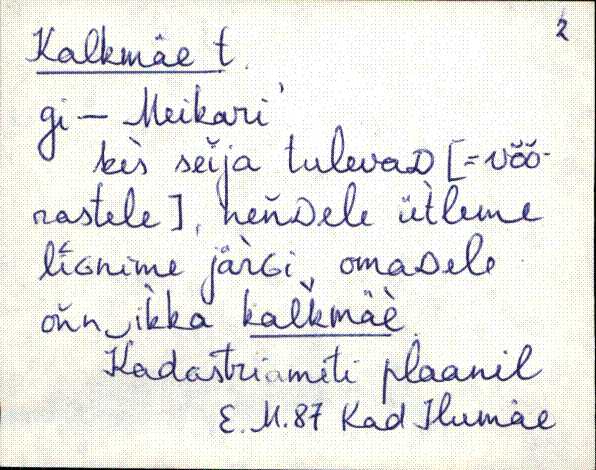 2
Kalkmäe t.
gi — Meikari'
kès seĭja tulevaD [= vȫ̆õ-
rastele], neňDele ütleme
líGnime jä̀rGi, omaDele
oňn‿ìkka kaľkmäè
Kadastriameti plaanil
E.M.87 Kad Ilumäe